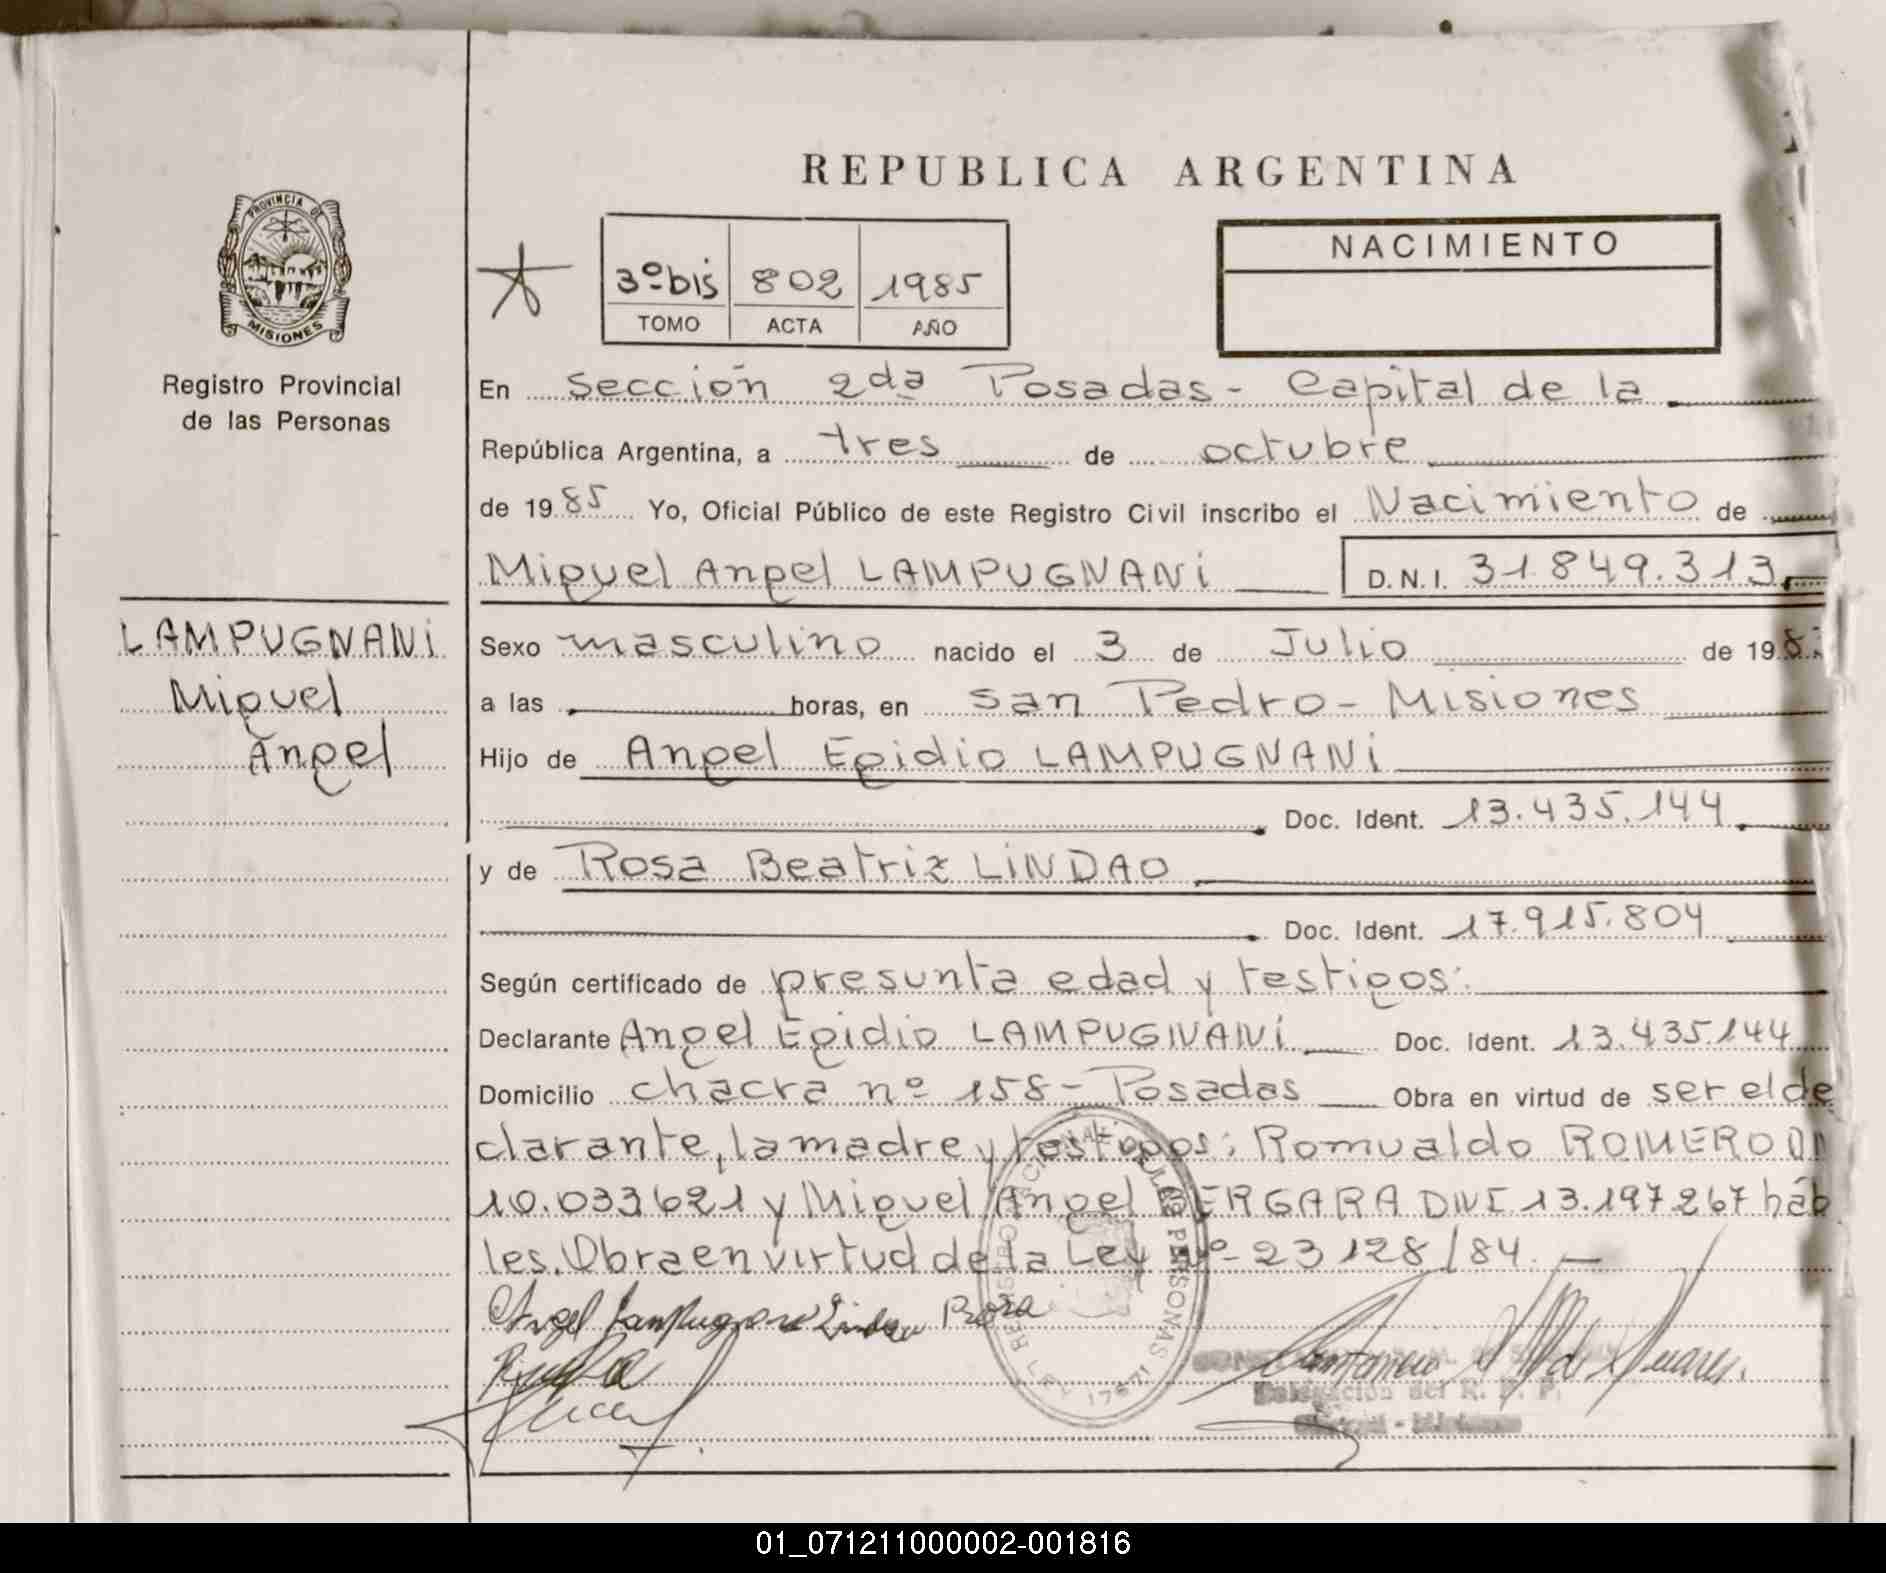 REPUBLICA ARGENTINA
PROVINCIA DE
MISIONES
Registro Provincial
de las Personas
3º bis 802 1985
TOMO ACTA AÑO
NACIMIENTO
En Sección 2da Posadas - Capital de la
República Argentina, a tres de octubre
de 1985 Yo, Oficial Público de este Registro Civil inscribo el Nacimiento de
Miguel Angel LAMPUGNANI D.N.I. 31.849.313
LAMPUGNANI
Miguel
Angel
Sexo masculino nacido el 3 de Julio de 198
a las horas, en San Pedro - Misiones
Hijo de Angel Egidio LAMPUGNANI
Doc. Ident. 13.435.144
y de Rosa Beatriz LINDAO
Doc. Ident. 17.915.804
Según certificado de presunta edad y testigos:
Declarante Angel Egidio LAMPUGNANI Doc. Ident. 13.435.144
Domicilio chacra nº 158 - Posadas Obra en virtud de ser el de
clarante, la madre y testigos: Romualdo ROMERO
10.033621 y Miguel Angel VERGARA DNI 13.197267 hábi
les. Obra en virtud de la Ley nº 23128/84.
Angel Lampugnani Lindao Rosa
Delegación del R. P. P.
01_071211000002-001816